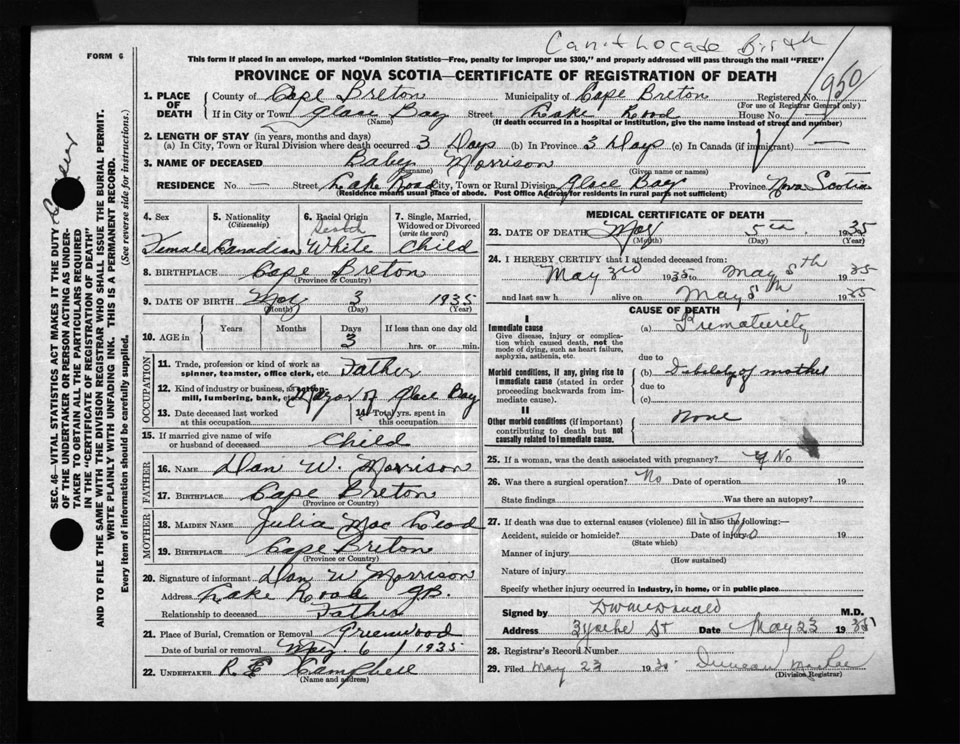 FORM 6
Can't Locate Birth
This form if placed in an envelope, marked "Dominion Statistics—Free, penalty for improper use $300," and properly addressed will pass through the mail "FREE"
PROVINCE OF NOVA SCOTIA—CERTIFICATE OF REGISTRATION OF DEATH
950
1. PLACE OF DEATH County of Cape Breton Municipality of Cape Breton Registered No.
(For use of Registrar General only)
If in City or Town Glace Bay Street Lake Road House No. —
(Name) (If death occurred in a hospital or institution, give the name instead of street and number)
2. LENGTH OF STAY (in years, months and days)
(a) In City, Town or Rural Division where death occurred 3 Days (b) In Province 3 Days (c) In Canada (if immigrant) —
3. NAME OF DECEASED Baby Morrison
(Surname) (Given name or names)
RESIDENCE No. — Street Lake Road City, Town or Rural Division Glace Bay Province Nova Scotia
(Residence means usual place of abode. Post Office Address for residents in rural parts not sufficient)
4. Sex Female
5. Nationality (Citizenship) Canadian
6. Racial Origin Scotch White
7. Single, Married, Widowed or Divorced (write the word) Child
8. BIRTHPLACE Cape Breton
(Province or Country)
9. DATE OF BIRTH May 3 1935
(Month) (Day) (Year)
10. AGE in Years Months Days If less than one day old
3 hrs. or min.
OCCUPATION
11. Trade, profession or kind of work as spinner, teamster, office clerk, etc. Father
12. Kind of industry or business, as cotton mill, lumbering, bank, etc. Mayor of Glace Bay
13. Date deceased last worked at this occupation 14. Total yrs. spent in this occupation
15. If married give name of wife or husband of deceased Child
FATHER
16. NAME Dan W. Morrison
17. BIRTHPLACE Cape Breton
(Province or Country)
MOTHER
18. MAIDEN NAME Julia Mac Leod
19. BIRTHPLACE Cape Breton
(Province or Country)
20. Signature of informant Dan W Morrison
Address Lake Road G.B.
Relationship to deceased Father
21. Place of Burial, Cremation or Removal Greenwood
Date of burial or removal May 6 1935
22. UNDERTAKER R E Campbell
(Name and address)
MEDICAL CERTIFICATE OF DEATH
23. DATE OF DEATH May 5th 1935
(Month) (Day) (Year)
24. I HEREBY CERTIFY that I attended deceased from:
May 3rd 1935 to May 5th 1935
and last saw h alive on May 5th 1935
CAUSE OF DEATH
I
Immediate cause
Give disease, injury or complication which caused death, not the mode of dying, such as heart failure, asphyxia, asthenia, etc.
(a) Prematurity
due to
Morbid conditions, if any, giving rise to immediate cause (stated in order proceeding backwards from immediate cause).
(b) Debility of mother
due to
(c)
II
Other morbid conditions (if important) contributing to death but not causally related to immediate cause.
None
25. If a woman, was the death associated with pregnancy? No
26. Was there a surgical operation? No Date of operation 19
State findings Was there an autopsy?
27. If death was due to external causes (violence) fill in also the following:—
Accident, suicide or homicide? Date of injury No 19
(State which)
Manner of injury
(How sustained)
Nature of injury
Specify whether injury occurred in industry, in home, or in public place
Signed by D W McDonald M.D.
Address St Date May 23 1935
28. Registrar's Record Number
29. Filed May 23 19 Duncan
(Division Registrar)
SEC. 46—VITAL STATISTICS ACT MAKES IT THE DUTY
OF THE UNDERTAKER OR PERSON ACTING AS UNDER-
TAKER TO OBTAIN ALL THE PARTICULARS REQUIRED
IN THE "CERTIFICATE OF REGISTRATION OF DEATH"
AND TO FILE THE SAME WITH THE DIVISION REGISTRAR WHO SHALL ISSUE THE BURIAL PERMIT.
WRITE PLAINLY WITH UNFADING INK. THIS IS A PERMANENT RECORD.
Every item of information should be carefully supplied. (See reverse side for instructions.)